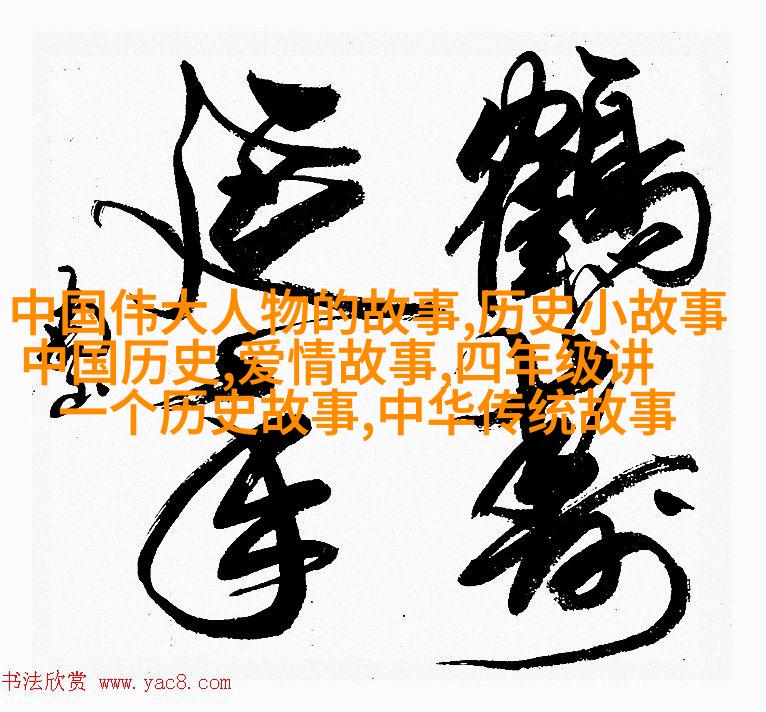 鶴壽
延年
中国伟大人物的故事,历史小故事
中国历史,爱情故事,四年级讲
一个历史故事,中华传统故事
书法欣赏 www.yac8.com